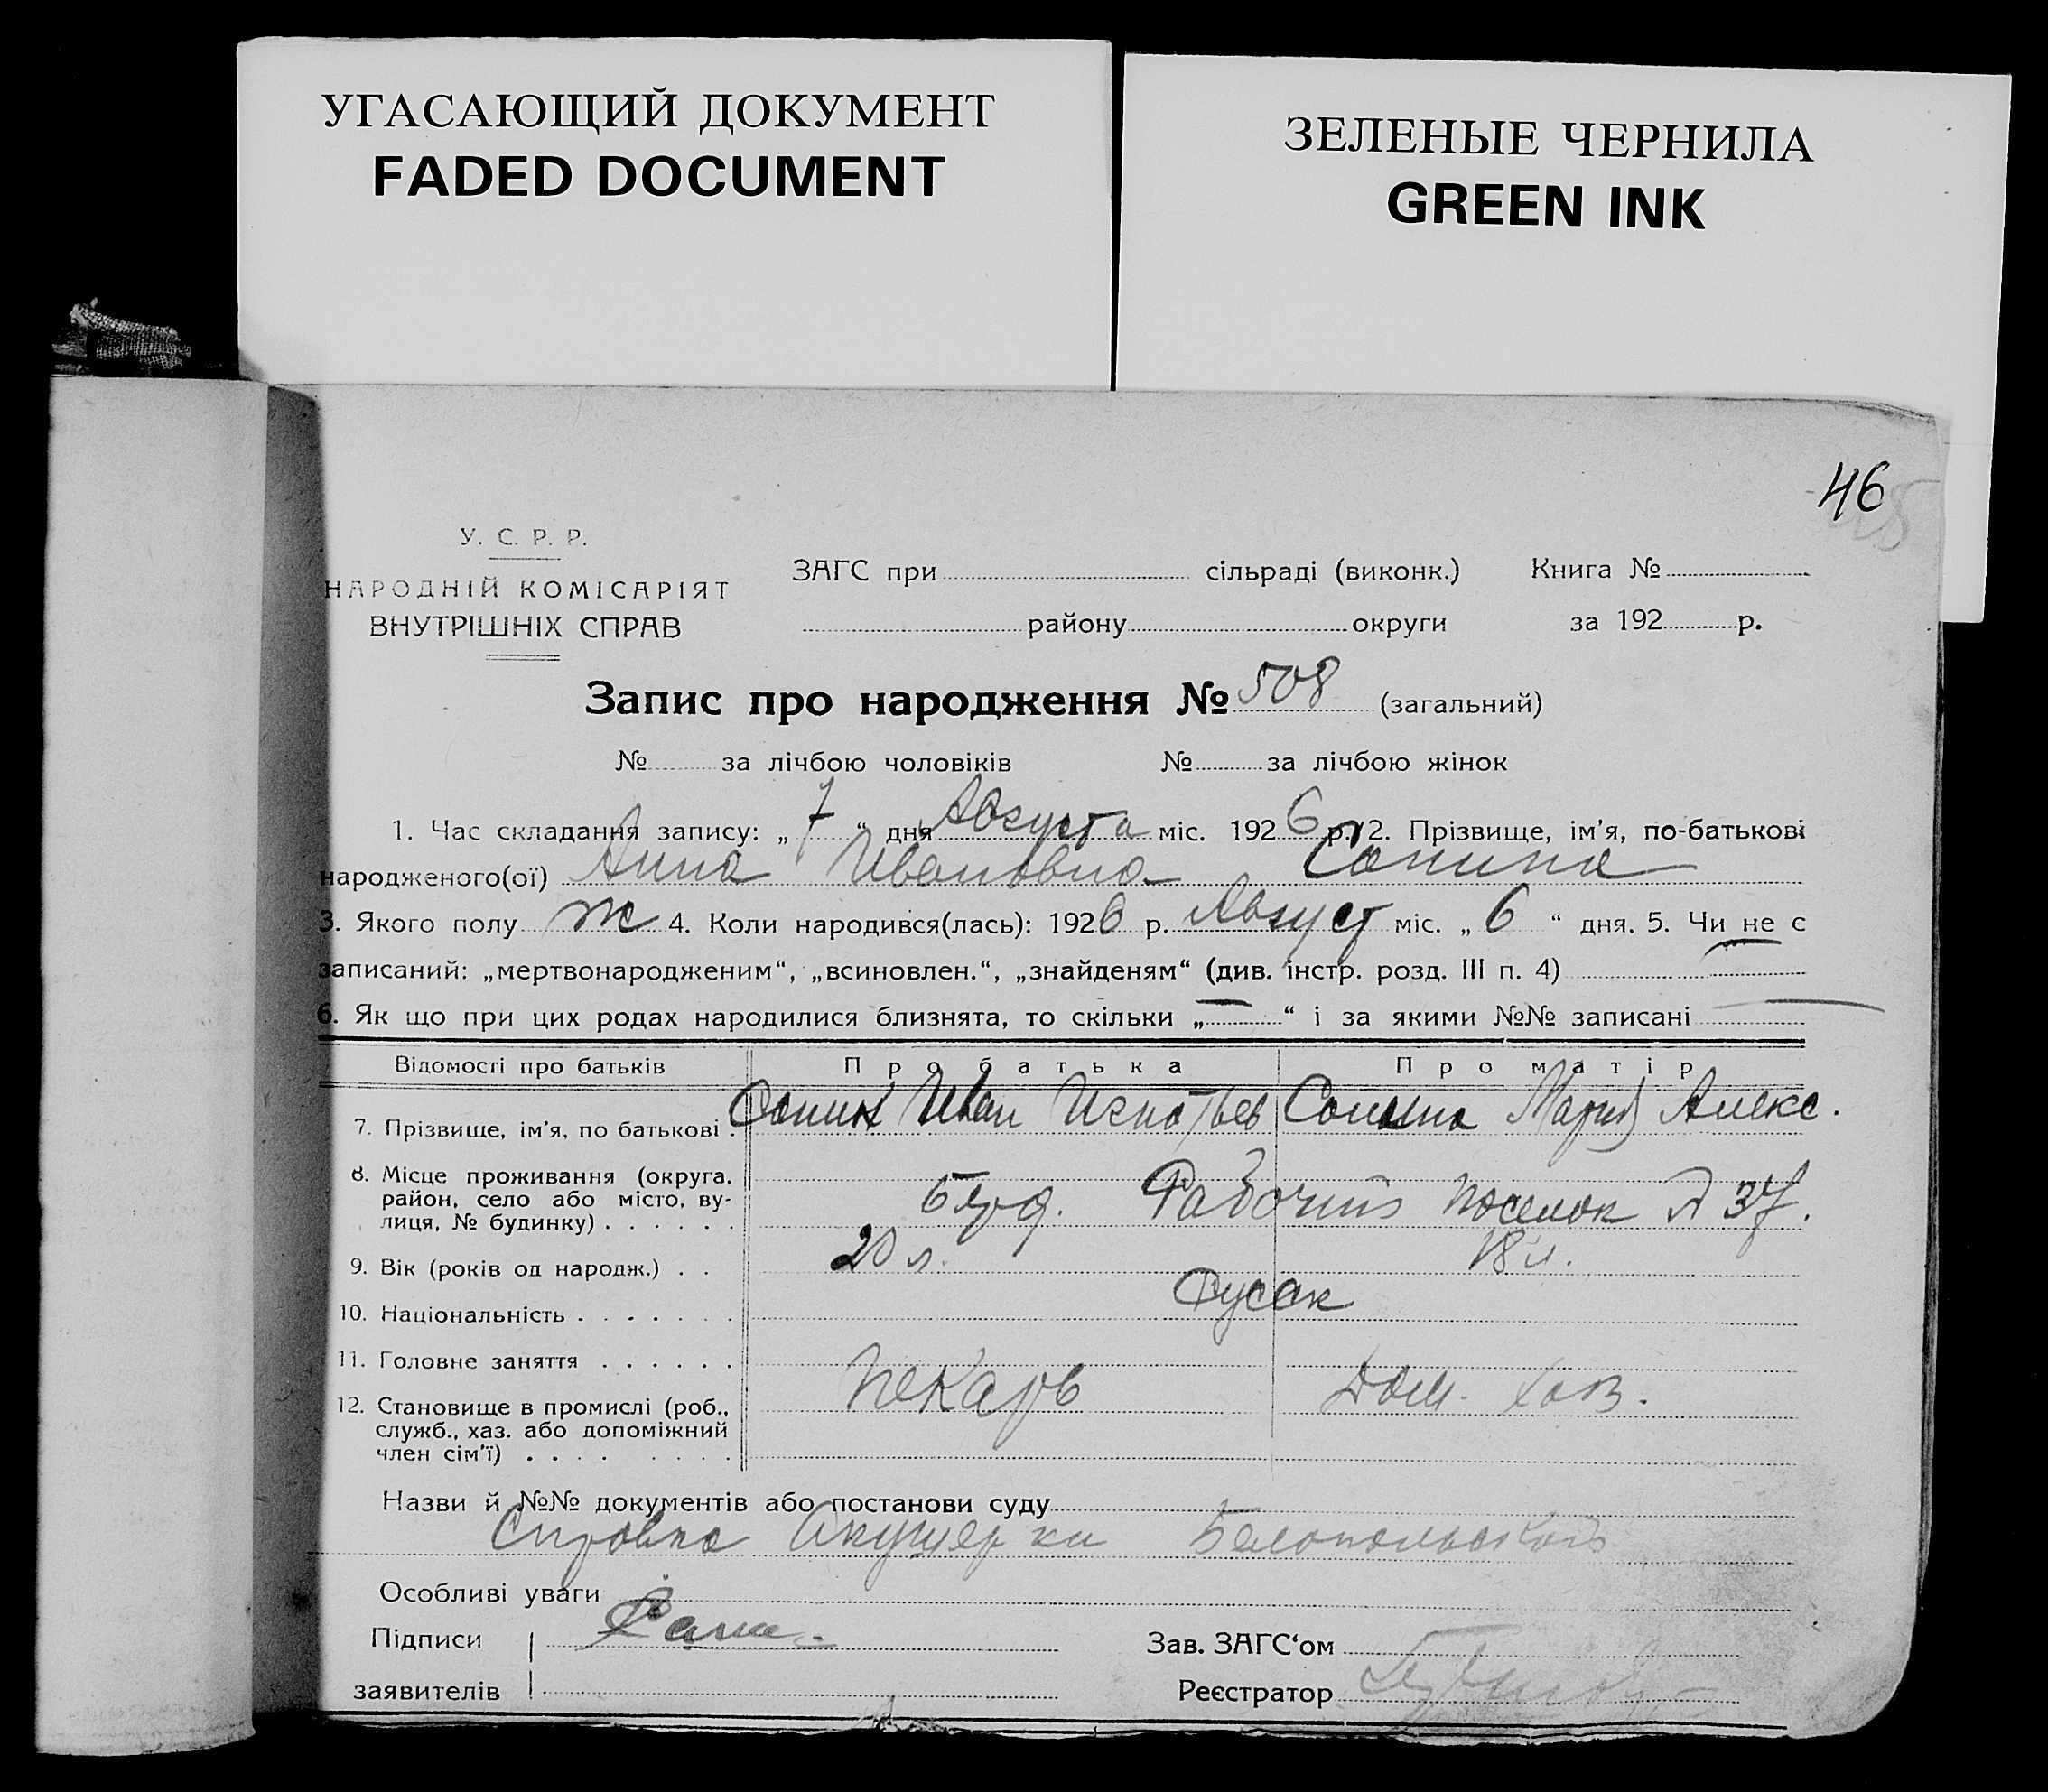 УГАСАЮЩИЙ ДОКУМЕНТ
FADED DOCUMENT
ЗЕЛЕНЫЕ ЧЕРНИЛА
GREEN INK
46
У. С. Р. Р.
НАРОДНІЙ КОМІСАРІЯТ
ВНУТРІШНІХ СПРАВ
ЗАГС при сільраді (виконк.) Книга №
району округи за 192 р.
Запис про народження № 508 (загальний)
№ за лічбою чоловіків № за лічбою жінок
1. Час складання запису: „ 7 “ дня Августа міс. 192 6 р. 2. Прізвище, ім'я, по-батькові
народженого(ої) Анна Ивановна Сонина
3. Якого полу ж 4. Коли народився(лась): 192 6 р. Август міс. „ 6 “ дня. 5. Чи не є
записаний: „мертвонародженим“, „всиновлен.“, „знайденям“ (див. інстр. розд. III п. 4)
6. Як що при цих родах народилися близнята, то скільки „ — “ і за якими №№ записані —
Відомості про батьків Про батька Про матір
7. Прізвище, ім'я, по батькові . Сонин Иван Игнатьев Сонина Мария Алекс.
8. Місце проживання (округа, район, село або місто, ву-
лиця, № будинку) . . . . . . Рабочий поселок № 37.
9. Вік (років од народж.) . . 20 л. 18 л.
10. Національність . . . . . . . Русск
11. Головне заняття . . . . . . Пекарь Дом. хоз.
12. Становище в промислі (роб.,
служб., хаз. або допоміжний
член сім'ї) . . . . . . . .
Назви й №№ документів або постанови суду
Справка Акушерки Белопольской
Особливі уваги
Підписи
заявителів
Зав. ЗАГС‘ом
Реєстратор